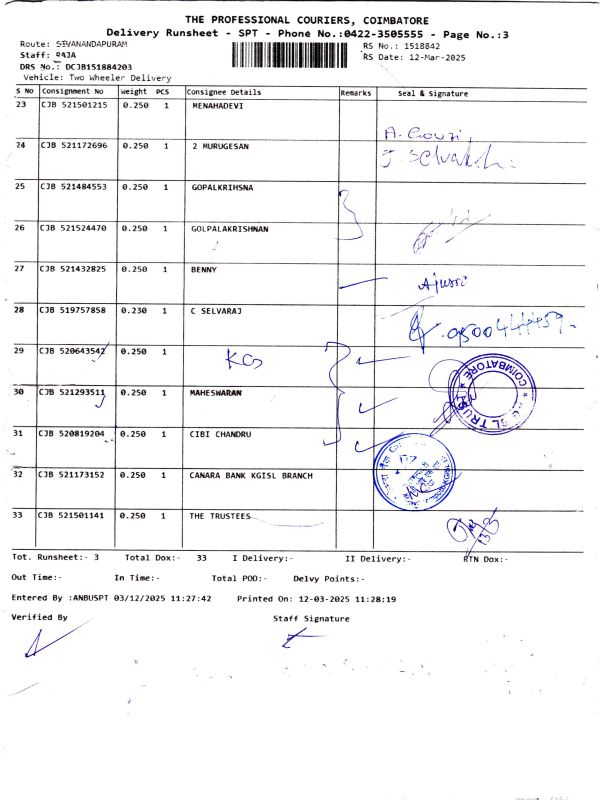 THE PROFESSIONAL COURIERS, COIMBATORE
Delivery Runsheet - SPT - Phone No.:0422-3505555 - Page No.:3
Route: SIVANANDAPURAM RS No.: 1518842
Staff: RAJA RS Date: 12-Mar-2025
DRS No.: DCJB151884203
Vehicle: Two Wheeler Delivery
S No Consignment No Weight PCS Consignee Details Remarks Seal & Signature
23 CJB 521501215 0.250 1 MENAHADEVI
A. Gouri,
24 CJB 521172696 0.250 1 2 MURUGESAN
25 CJB 521484553 0.250 1 GOPALKRIHSNA
26 CJB 521524470 0.250 1 GOLPALAKRISHNAN
27 CJB 521432825 0.250 1 BENNY
28 CJB 519757858 0.230 1 C SELVARAJ
29 CJB 520643542 0.250 1 KG
30 CJB 521293511 0.250 1 MAHESWARAN
COIMBATORE
31 CJB 520819204 0.250 1 CIBI CHANDRU
32 CJB 521173152 0.250 1 CANARA BANK KGISL BRANCH
33 CJB 521501141 0.250 1 THE TRUSTEES
Tot. Runsheet:- 3 Total Dox:- 33 I Delivery:- II Delivery:- RTN Dox:-
Out Time:- In Time:- Total POD:- Delvy Points:-
Entered By :ANBUSPT 03/12/2025 11:27:42 Printed On: 12-03-2025 11:28:19
Verified By Staff Signature